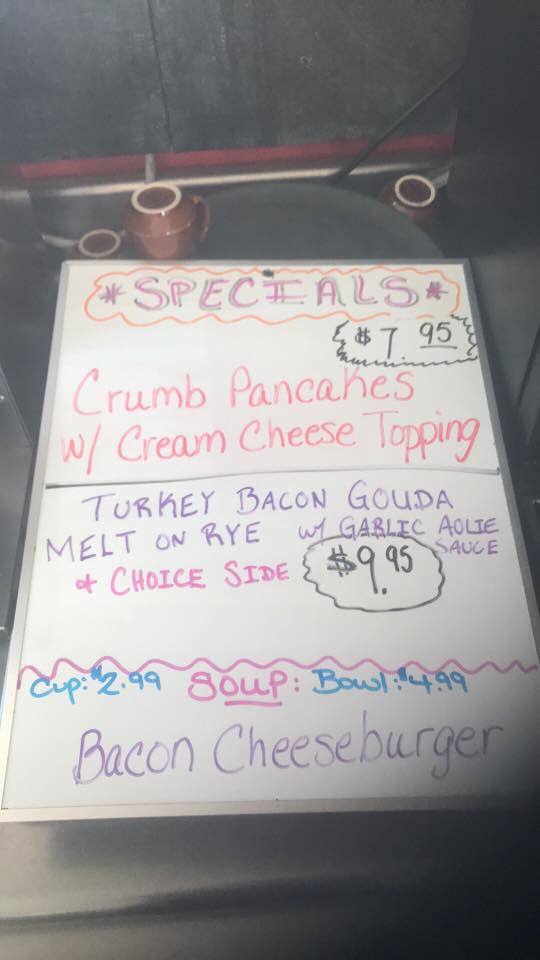 *SPECIALS*
$7.95
Crumb Pancakes
w/ Cream Cheese Topping
TURKEY BACON GOUDA
MELT ON RYE w/ GARLIC AOLIE
SAUCE
& CHOICE SIDE $9.95
Cup: $2.99 SOUP: Bowl: $4.99
Bacon Cheeseburger